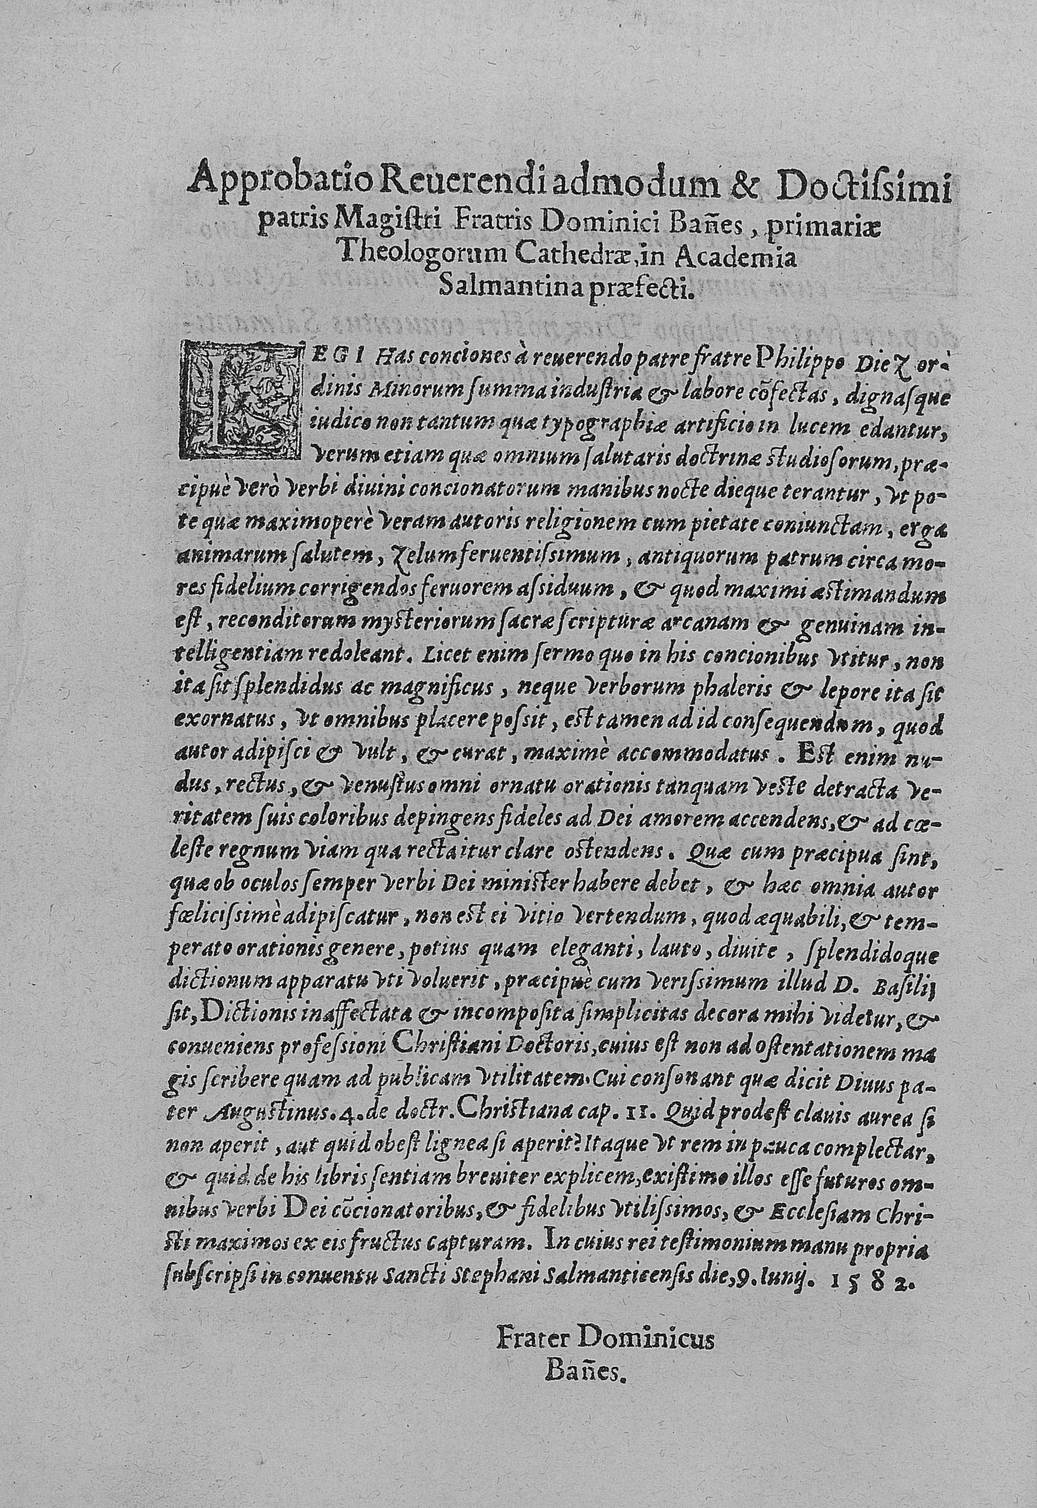 Approbatio Reuerendi admodum & Doctiſsimi
patris Magiſtri Fratris Dominici Bañes, primariæ
Theologorum Cathedræ, in Academia
Salmantina præfecti.
LEGI Has conciones à reuerendo patre fratre Philippo Diez or-
dinis Minorum ſumma induſtria & labore cõfectas, dignaſque
iudico non tantum quæ typographiæ artificio in lucem edantur,
verum etiam quæ omnium ſalutaris doctrinæ ſtudioſorum, præ-
cipuè verò verbi diuini concionatorum manibus nocte dieque terantur, vt po-
te quæ maximoperè veram autoris religionem cum pietate coniunctam, erga
animarum ſalutem, zelum feruentiſsimum, antiquorum patrum circa mo-
res fidelium corrigendos feruorem aſsiduum, & quod maximi æſtimandum
eſt, reconditorum myſteriorum ſacræ ſcripturæ arcanam & genuinam in-
telligentiam redoleant. Licet enim ſermo quo in his concionibus vtitur, non
ita ſit ſplendidus ac magnificus, neque verborum phaleris & lepore ita ſit
exornatus, vt omnibus placere poſsit, eſt tamen ad id conſequendum, quod
autor adipiſci & vult, & curat, maximè accommodatus. Eſt enim nu-
dus, rectus, & venuſtus omni ornatu orationis tanquam veſte detracta ve-
ritatem ſuis coloribus depingens fideles ad Dei amorem accendens, & ad cœ-
leſte regnum viam qua recta itur clare oſtendens. Quæ cum præcipua ſint,
quæ ob oculos ſemper verbi Dei miniſter habere debet, & hæc omnia autor
fœliciſsimè adipiſcatur, non eſt ei vitio vertendum, quod æquabili, & tem-
perato orationis genere, potius quam eleganti, lauto, diuite, ſplendidoque
dictionum apparatu vti voluerit, præcipuè cum veriſsimum illud D. Baſilij
ſit, Dictionis inaffectata & incompoſita ſimplicitas decora mihi videtur, &
conueniens profeſsioni Chriſtiani Doctoris, cuius eſt non ad oſtentationem ma
gis ſcribere quam ad publicam vtilitatem. Cui conſonant quæ dicit Diuus pa-
ter Auguſtinus. 4. de doctr. Chriſtiana cap. 11. Quid prodeſt clauis aurea ſi
non aperit, aut quid obeſt lignea ſi aperit? Itaque vt rem in pauca complectar,
& quid de his libris ſentiam breuiter explicem, exiſtimo illos eſſe futuros om-
nibus verbi Dei cõcionatoribus, & fidelibus vtiliſsimos, & Eccleſiam Chri-
ſti maximos ex eis fructus capturam. In cuius rei teſtimonium manu propria
ſubſcripſi in conuentu Sancti Stephani Salmanticenſis die, 9. Iunij. 1582.
Frater Dominicus
Bañes.